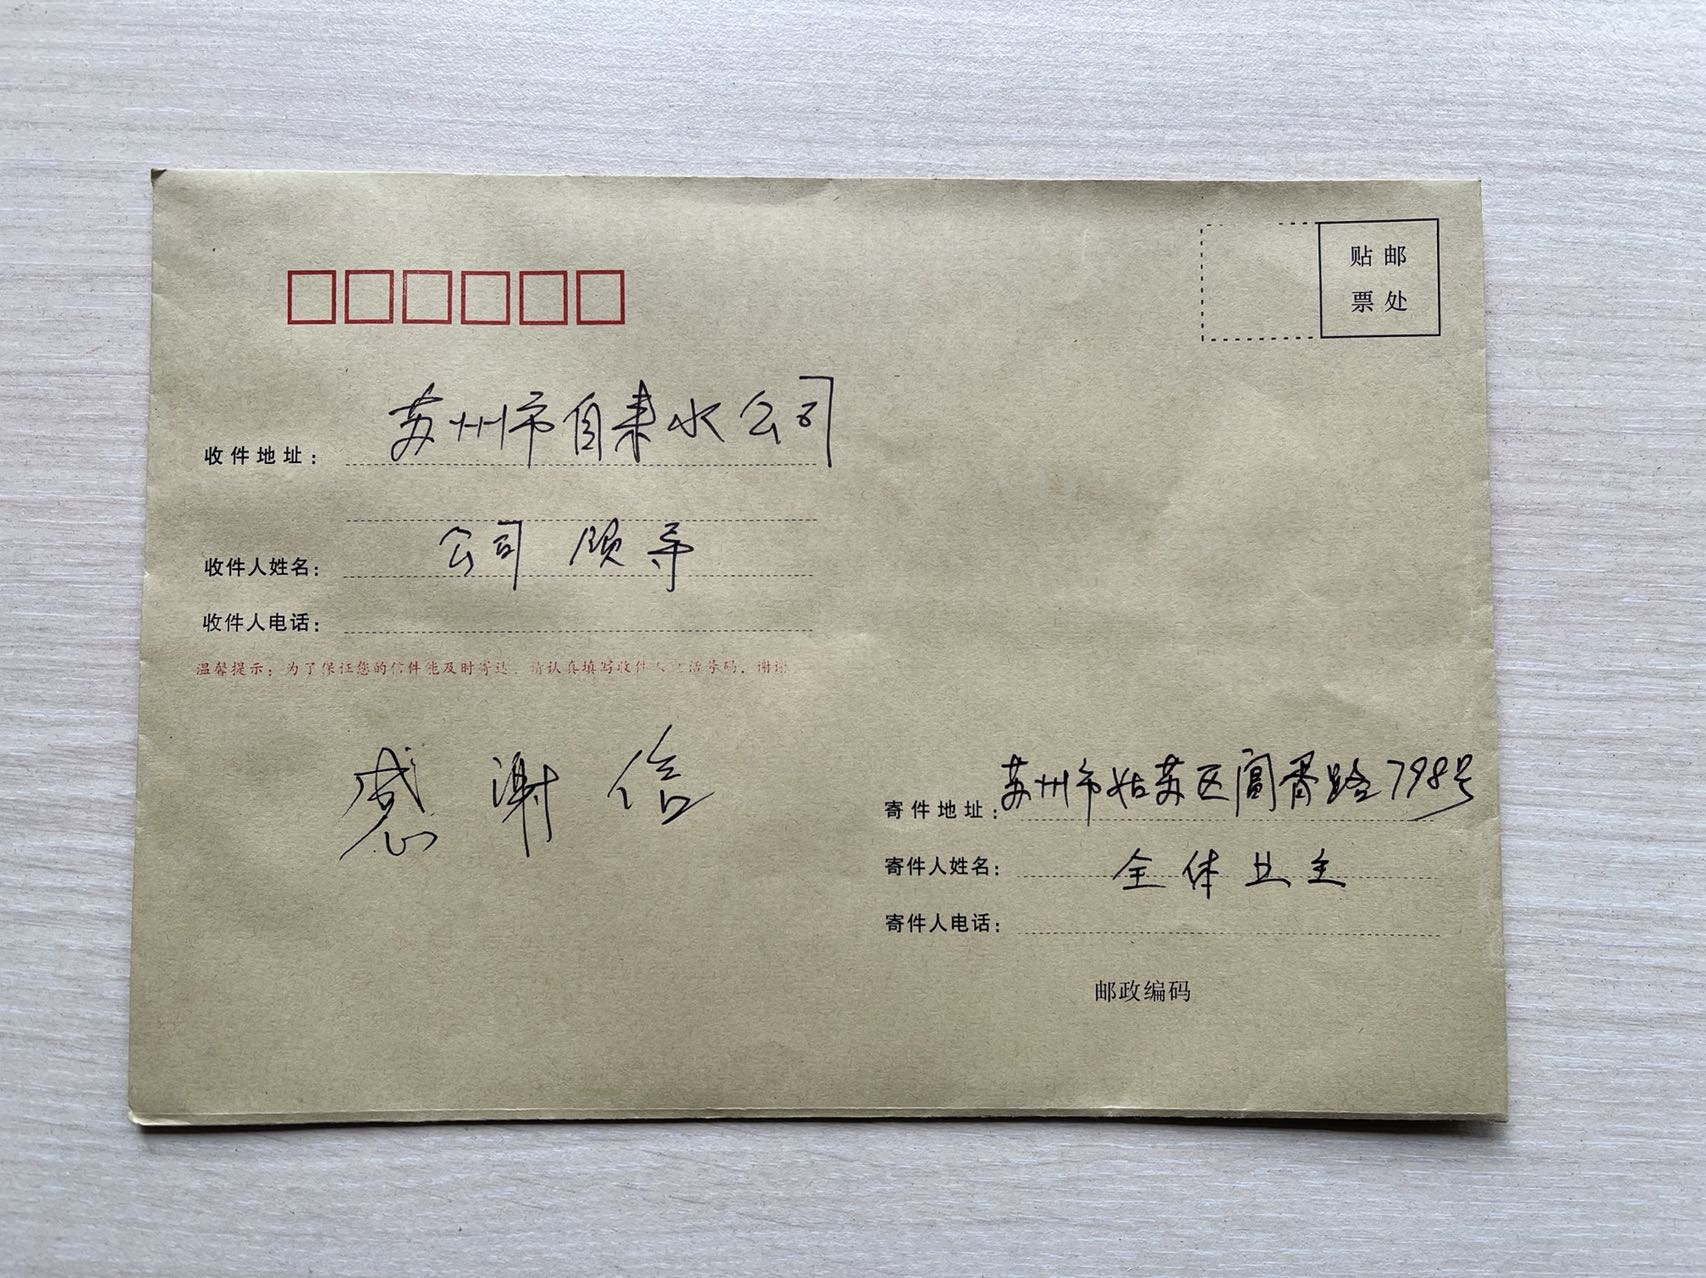 贴邮
票处
收件地址：苏州市自来水公司
收件人姓名：公司 领导
收件人电话：
温馨提示：为了保证您的信件能及时寄达，请认真填写收件人电话号码，谢谢
感谢信
寄件地址：苏州市姑苏区阊胥路798号
寄件人姓名：全体业主
寄件人电话：
邮政编码